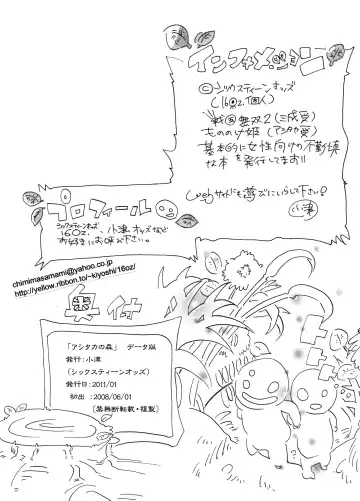 インフォメーション
©シックスティーンオッズ
(16oz.個人)
戦国無双2(三成愛)
もののけ姫(アシタカ愛)
基本的に女性向けの不健壌
な本を発行してます!!
Webサイトにも遊びにいらして下さい?
小津
プロフィール
シックスティーンオッズ
16oz. 、小津オッズなど
お好きにお呼び下さい。
chimimasamami@yahoo.co.jp
http://yellow.ribbon.to/~kiyoshi/16oz/
奥付
「アシタカの森」 データ版
発行:小津
(シックスティーンオッズ)
発行日:2011/01
初出 :2008/06/01
[禁無断転載・複製]